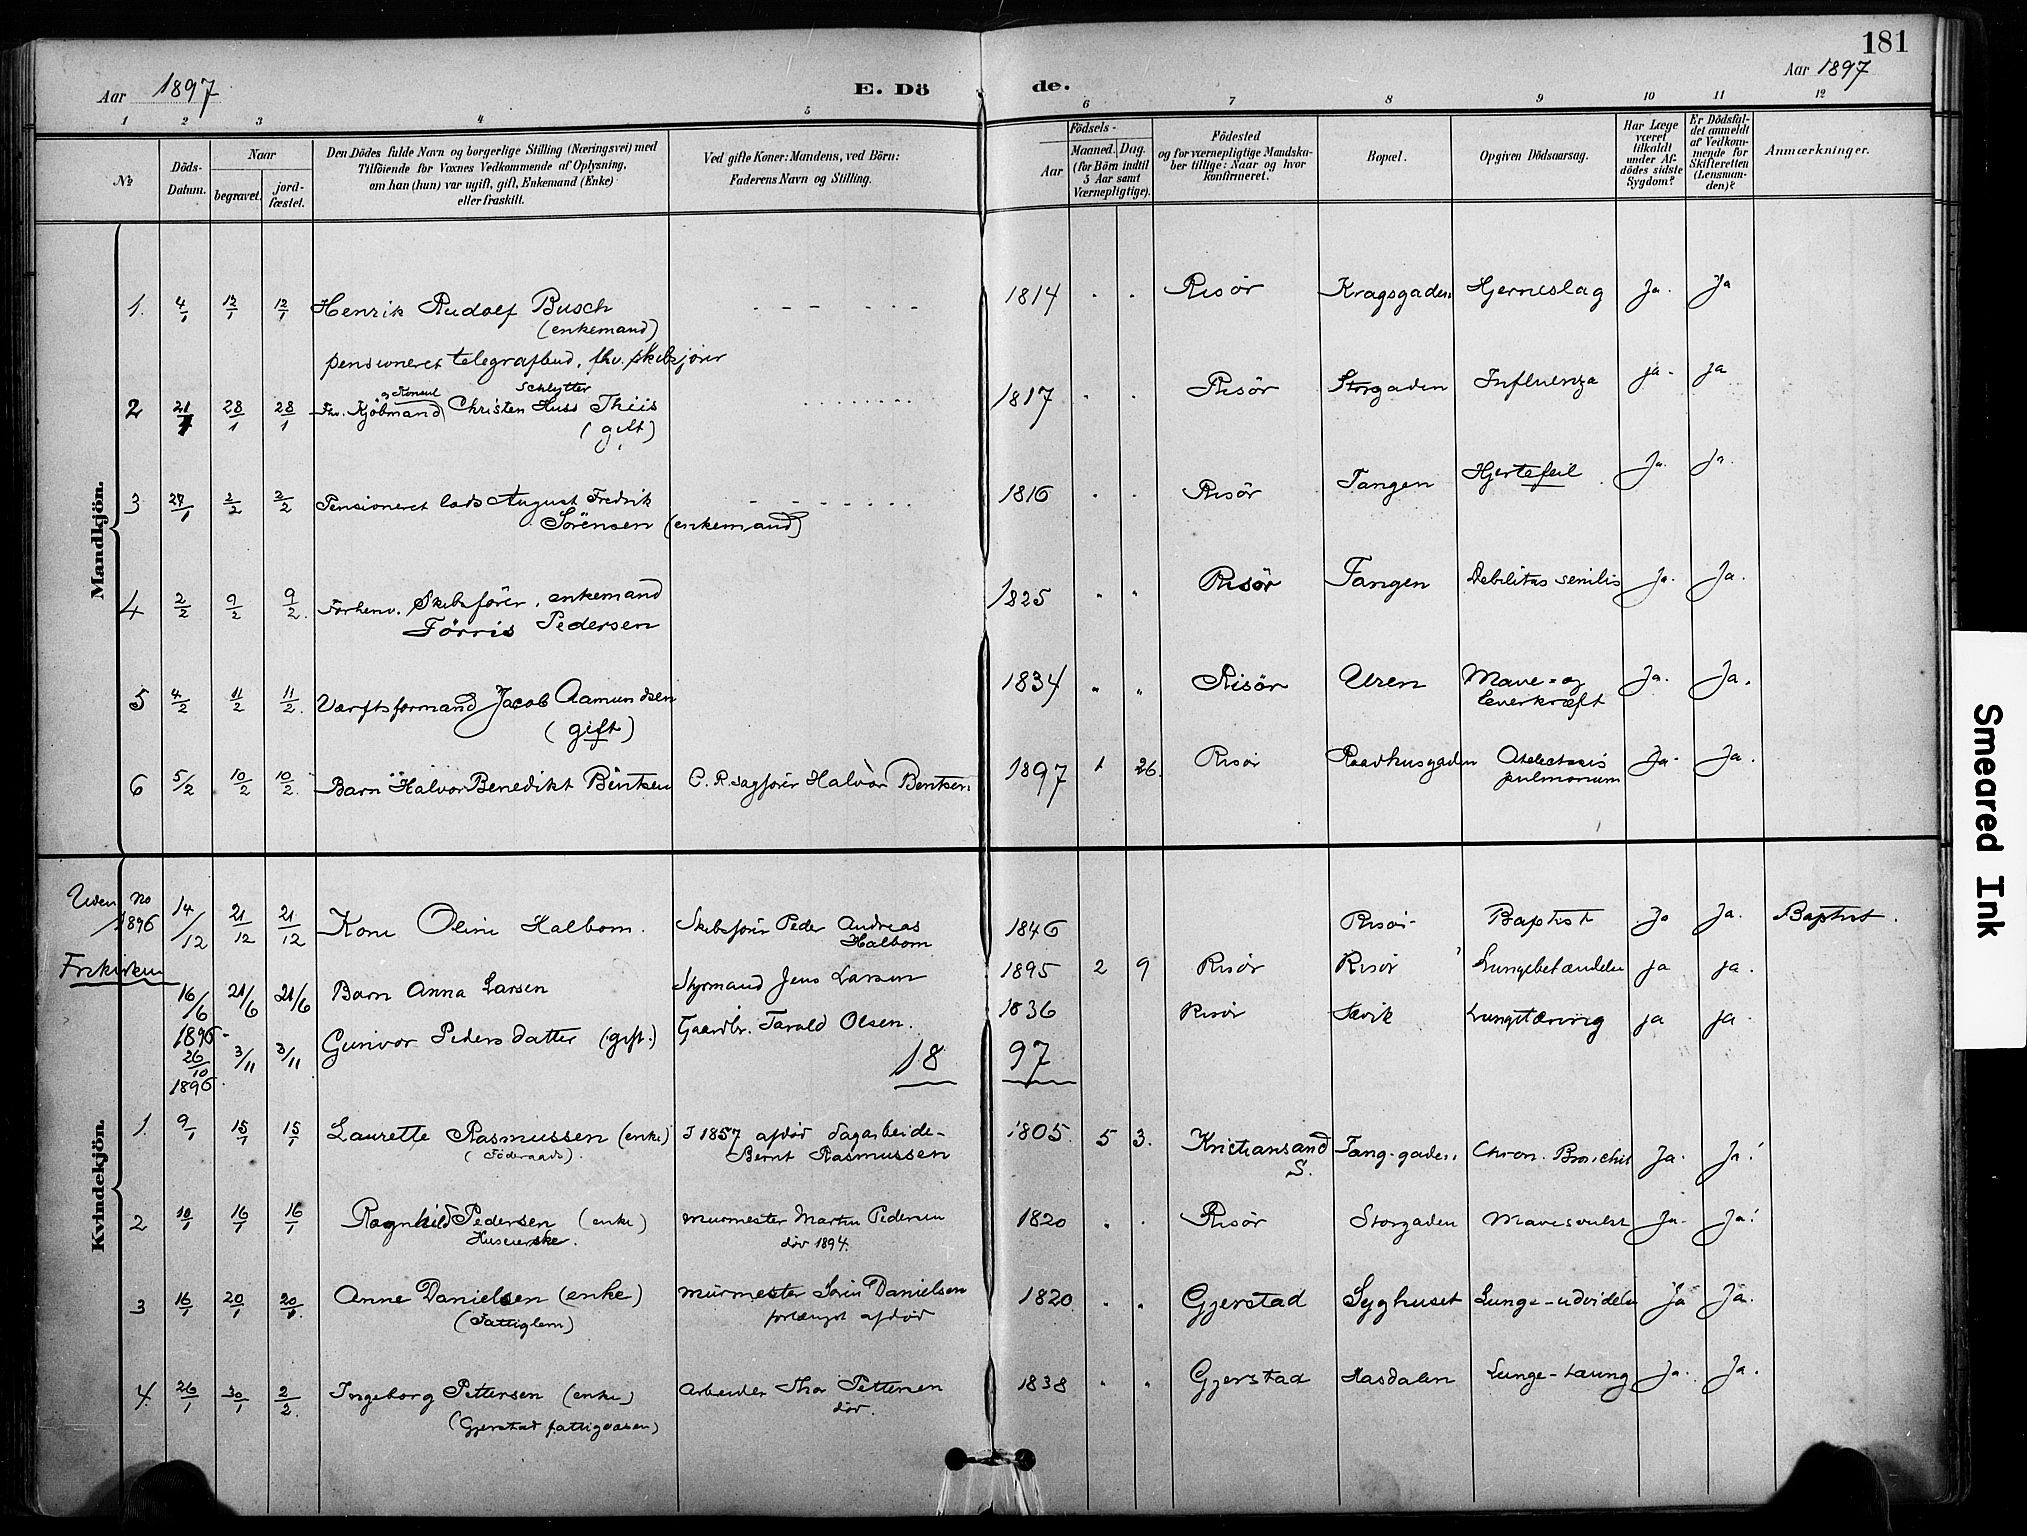 181
Aar 1897
E. Dö de.
Aar 1897
1 2 3 4 5 6 7 8 9 10 11 12
№
Döds-Datum.
Naar
begravet.
jord-fæstet.
Den Dödes fulde Navn og borgerlige Stilling (Næringsvei) med
Tilföiende for Voxnes Vedkommende af Oplysning,
om han (hun) var ugift, gift, Enkemand (Enke)
eller fraskilt.
Ved gifte Koner: Mandens, ved Börn:
Faderens Navn og Stilling.
Födsels-
Aar
Maaned. Dag.
(for Börn indtil
5 Aar samt
Værnepligtige).
Födested
og for værnepligtige Mandska-
ber tillige: Naar og hvor
konfirmeret.
Bopæl.
Opgiven Dödsaarsag.
Har Læge
været
tilkaldt
under Af-
dödes sidste
Sygdom?
Er Dödsfal-
det anmeldt
af Vedkom-
mende for
Skifteretten
(Lensman-
den)?
Anmærkninger.
Mandkjön.
1. 4/1 12/1 12/1 Henrik Rudolf Busch 1814 Risör Kragsgaden Hjerneslag Ja. Ja
(enkemand)
pensioneret telegrafbud, fhv. skibsförer
og Konsul Schlytter
2 21/1 28/1 28/1 Fhv. Kjöbmand Christen Huss Thiis 1817 Risör Storgaden Influenza ja. ja
(gift)
3 27/1 2/2 2/2 Pensioneret lods August Fredrik 1816 Risör Tangen Hjertefeil Ja. ja.
Sörensen (enkemand)
4 2/2 9/2 9/2 Forhenv. Skibsförer, enkemand 1825 Risör Tangen Debilitas senilis Ja. Ja.
Törris Pedersen
5 4/2 11/2 11/2 Værftsformand Jacob Aamundsen 1834 Risör Uren Mave- og Ja. Ja.
(gift) Leverkræft
6 5/2 10/2 10/2 Barn Halvor Benedikt Bentsen O. R. sagförer Halvor Bentsen 1897 1 26. Risör Raadhusgaden Atelectasis Ja. Ja.
pulmonum
Uden No
1896 14/12 21/12 21/12 Kone Oline Halbom. Skibsförer Peder Andreas 1846 Risör Baptist Ja Ja. Baptist.
Halbom
Frikirken
16/6 21/6 21/6 Barn Anna Larsen Styrmand Jens Larsen 1895 2 9 Risör Risör Lungebetændelse ja ja.
1896
26/10 3/11 3/11 Gunvor Pedersdatter (gift.) Gaardbr. Tarald Olsen. 1836 Risör Sævik Lungetæring ja ja.
1896.
18 97
Kvindekjön.
1. 9/1 15/1 15/1 Laurette Rasmussen (enke) I 1857 afdöd dagarbeider 1805. 5 3. Kristiansand Tang-gaden Chron. Bronchit Ja. Ja!
(Föderaads). Bernt Rasmussen S.
2 10/1 16/1 16/1 Ragnhild Pedersen (enke) murmester Martin Pedersen 1820 Risör Storgaden Mavesvulst Ja. Ja!
Huseierske. död 1894.
3 16/1 20/1 20/1 Anne Danielsen (enke) murmester Sörin Danielsen 1820. Gjerstad Syghuset Lunge-udvidelse Ja Ja.
(Fattiglem) forlængst afdöd
4. 26/1 30/1 2/2 Ingeborg Pettersen (enke) Arbeider Thor Pettersen 1838 Gjerstad Hasdalen Lunge-tæring Ja. Ja.
(Gjerstad fattigvæsen) död.
Smeared Ink